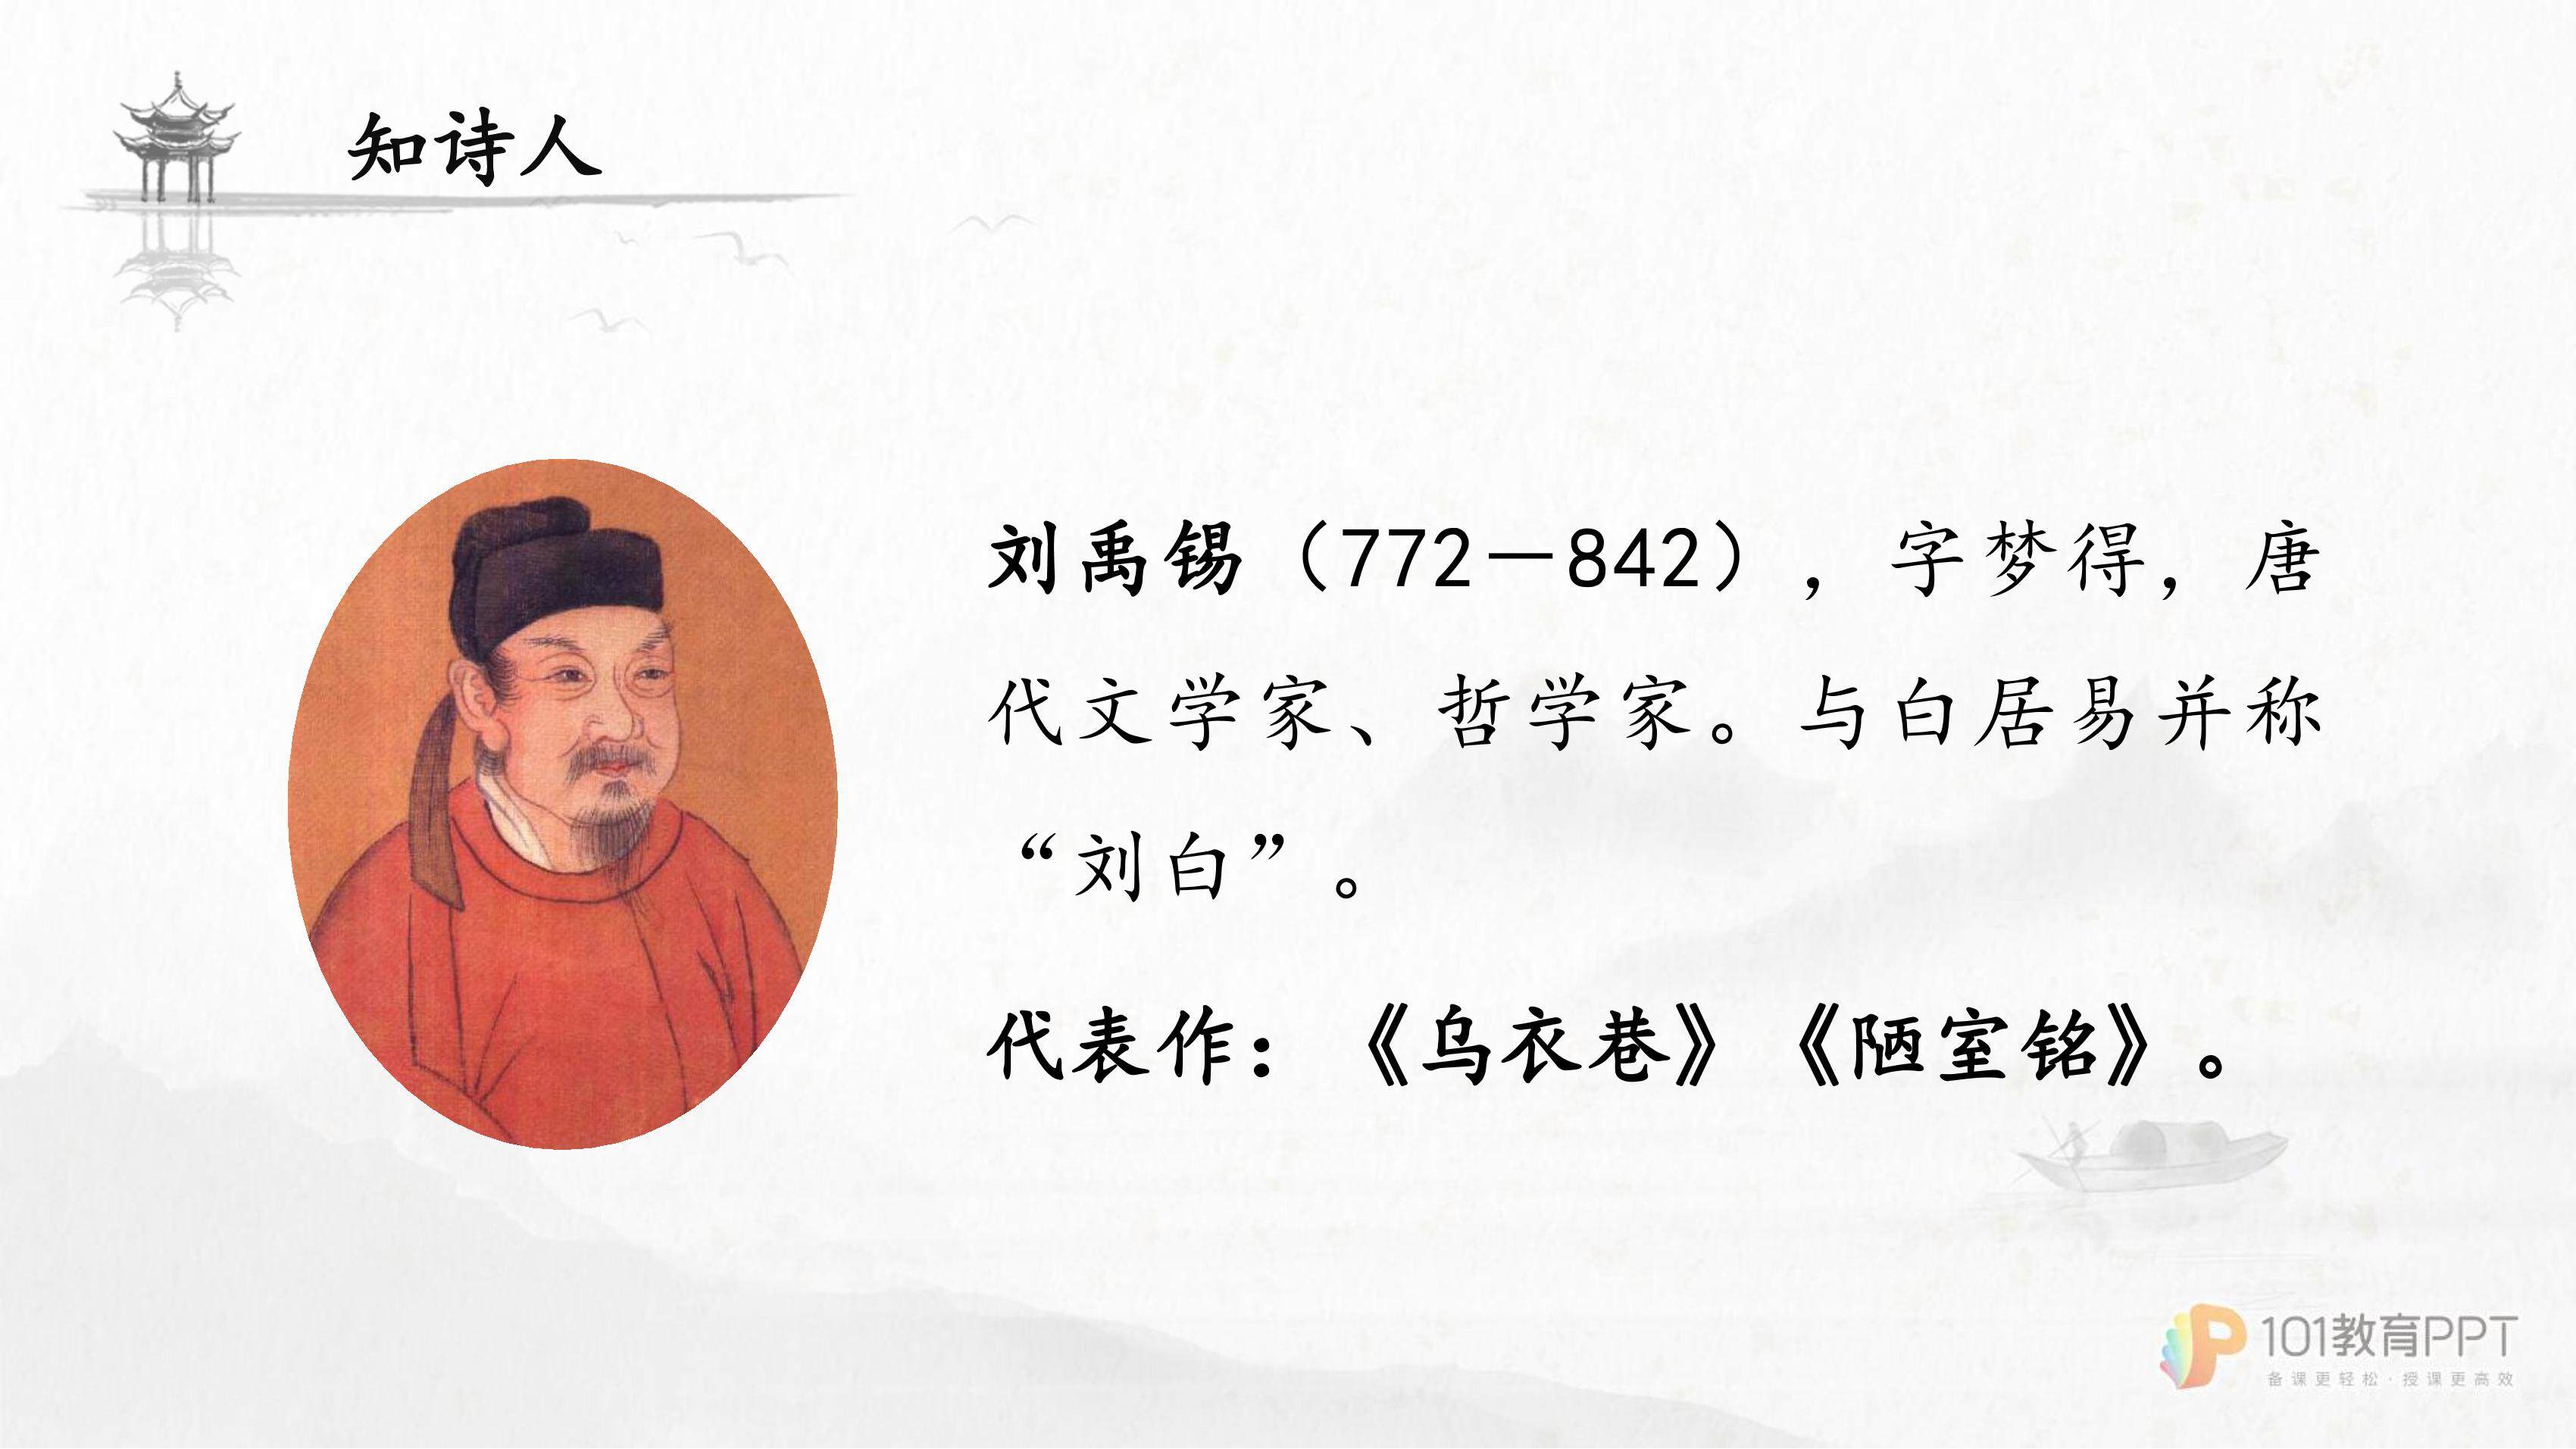 知诗人
刘禹锡（772－842），字梦得，唐
代文学家、哲学家。与白居易并称
“刘白”。
代表作：《乌衣巷》《陋室铭》。
101教育PPT
备课更轻松·授课更高效